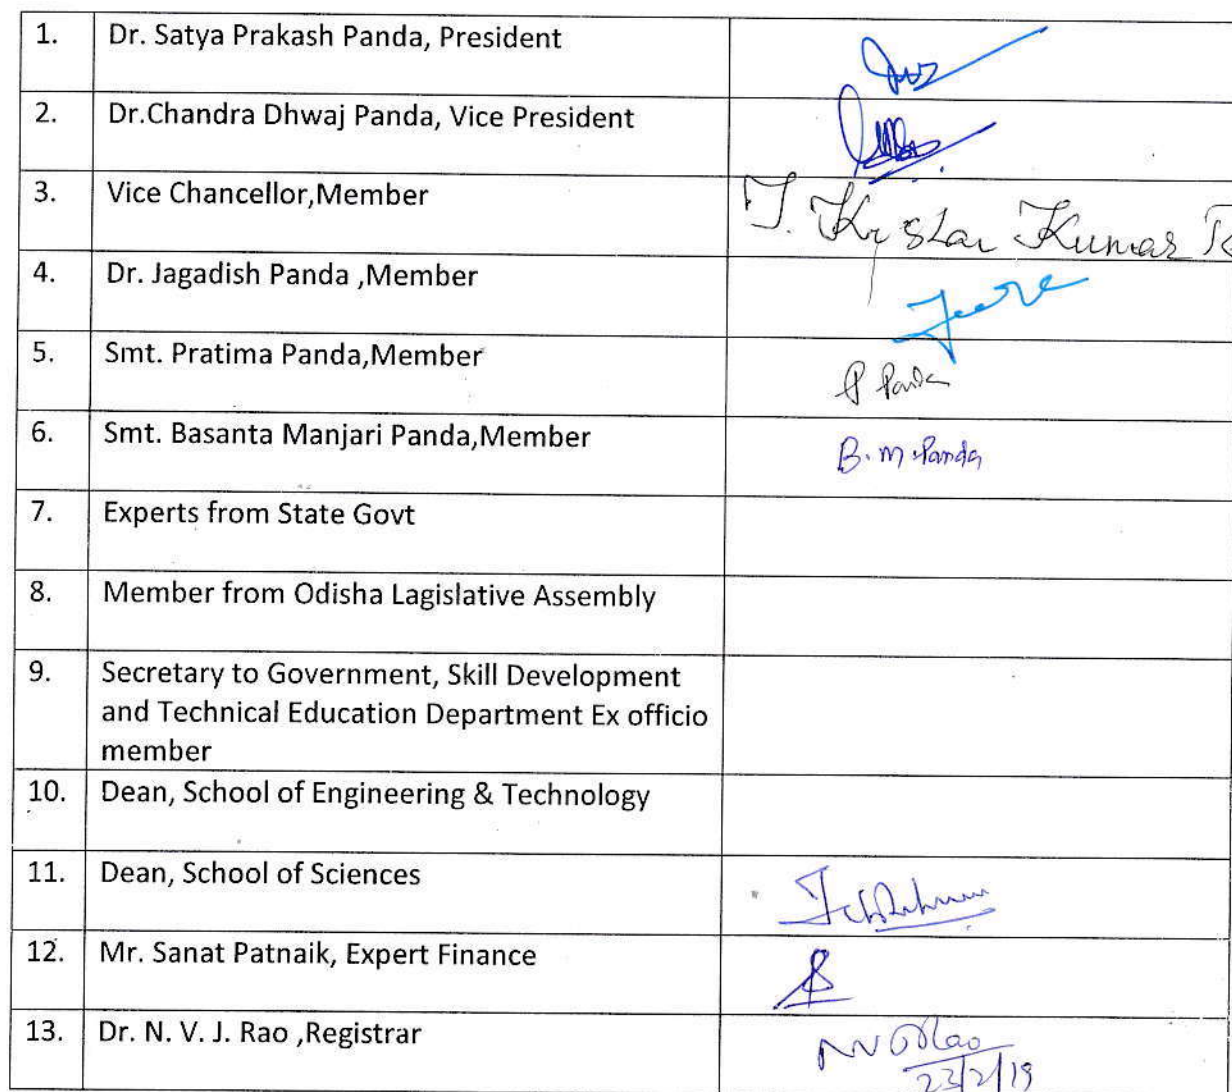 1. Dr. Satya Prakash Panda, President
2. Dr.Chandra Dhwaj Panda, Vice President
3. Vice Chancellor,Member T. Kumar
4. Dr. Jagadish Panda ,Member
5. Smt. Pratima Panda,Member P Panda
6. Smt. Basanta Manjari Panda,Member B.M.Panda
7. Experts from State Govt
8. Member from Odisha Lagislative Assembly
9. Secretary to Government, Skill Development
and Technical Education Department Ex officio
member
10. Dean, School of Engineering & Technology
11. Dean, School of Sciences
12. Mr. Sanat Patnaik, Expert Finance
13. Dr. N. V. J. Rao ,Registrar NVJRao
23/2/19